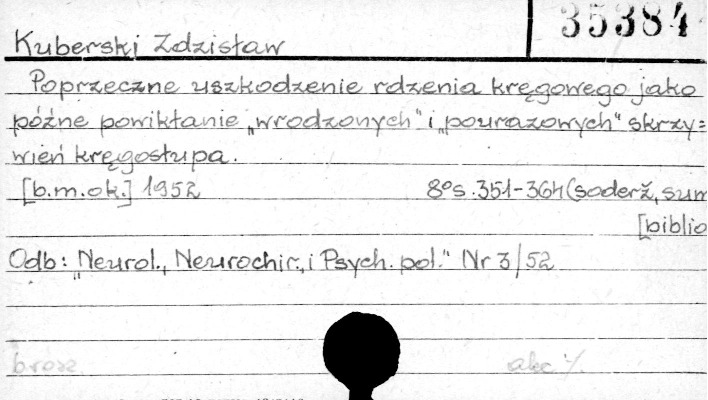 35384
Kuberski Zdzisław
Poprzeczne uszkodzenie rdzenia kręgowego jako
późne powikłanie „wrodzonych" i „pourazowych" skrzy=
wień kręgosłupa.
[b.m.ok.] 1952 8° s. 351-364 (soderž, sum
[biblio
Odb: „Neurol., Neurochir., i Psych. pol." Nr 3/52
brosz